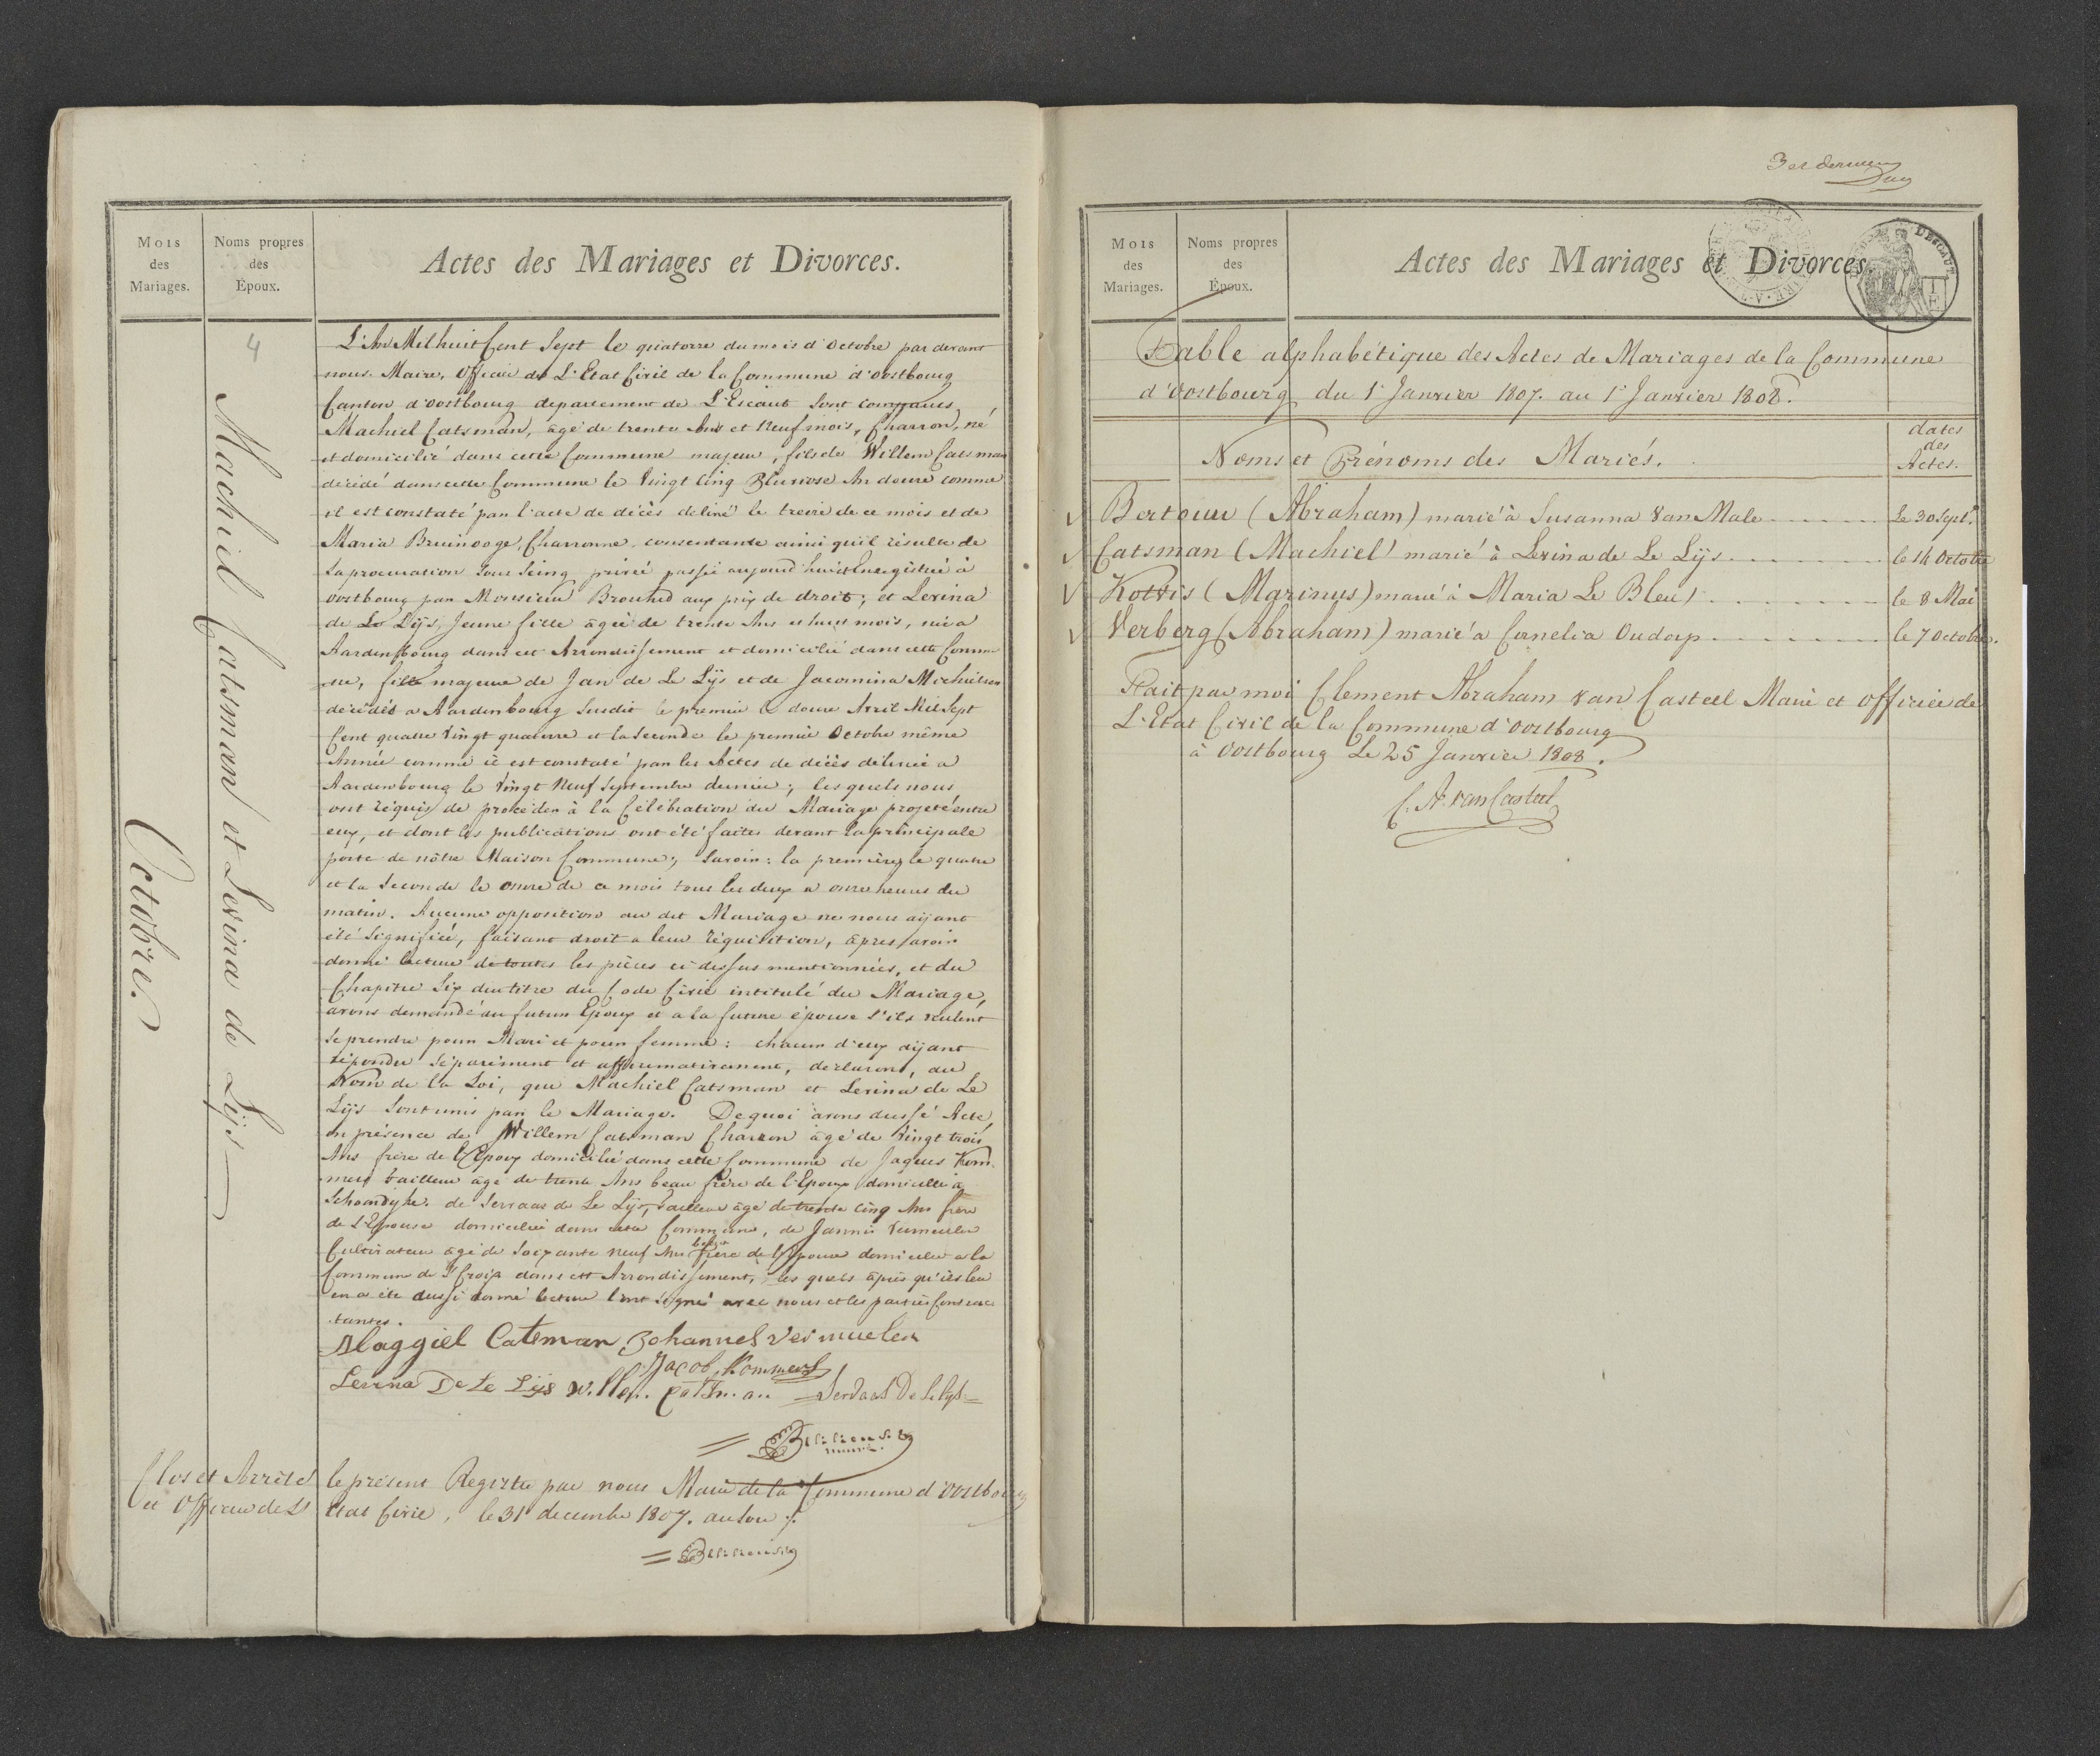 Mois
des
Mariages.
Noms propres
des
Époux.
Actes des Mariages et Divorces.
4
Machiel Catsman et Levina de Lijs
Octobre.
L'An Mil huit Cent Sept le quatorze du mois d'Octobre par devant
nous Maire, Officier de L'Etat Civil de la Commune d'Oostbourg
Canton d'Oostbourg departement de L'Escaut sont comparus
Machiel Catsman, âgé de trente Ans et Neuf mois, Charron, né
et domicilié dans cette Commune majeur, fils de Willem Catsman
décédé dans cette Commune le Vingt Cinq Pluviose An douze comme
il est constaté par l'acte de décès délivré le treize de ce mois et de
Maria Bruinooge, Charronne, consentante ainsi qu'il résulte de
sa procuration sous seing privé passée aujourd'hui et Enregistrée à
Oostbourg par Monsieur aux prix de droit; et Levina
de Le Lijs, Jeune fille âgée de trente Ans et huit mois, née à
Aardenbourg dans cet Arrondissement et domicilié dans cette Commu-
ne, fille majeure de Jan de Le Lijs et de Jacomina
décédés a Aardenbourg Susdit le premier le douze Avril Mil Sept
Cent quatre Vingt quatorze et la Seconde le premier Octobre même
Année comme il est constaté par les Actes de décès délivrés a
Aardenbourg le Vingt Neuf Septembre dernier; les quels nous
ont réquis de procéder à la Célébration du Mariage projeté entre
eux, et dont les publications ont été faites devant la principale
porte de nôtre Maison Commune; Savoir: la première le quatre
et la Seconde le onze de ce mois tous les deux a onze heures du
matin. Aucune opposition au dit Mariage ne nous aijant
été Signifiée, faisant droit a leur réquisition, âpres avoir
donné lecture de toutes les pièces ci dessus mentionnées, et du
Chapitre Six du titre du Code Civil intitulé du Mariage,
avons demandé au futur Epoux et a la future épouse S'ils veulent
se prendre pour Mari et pour femme: chacun d'eux aijant
répondu séparément et affirmativement, declarons, au
Nom de la Loi, que Machiel Catsman et Levina de Le
Lijs Sont unis par le Mariage. De quoi avons dressé Acte,
en présence de Willem Catsman Charron âgé de Vingt trois
Ans frère de l'Epoux domicilié dans cette Commune de Jaques Kom-
mers tailleur âgé de trente Ans beau frère de l'Epoux domicilié à
Schoondijke. de Servaas de Le Lijs, tailleur âgé de trente cinq Ans frère
de L'Epouse domicilié dans cette Commune, de Jannis Vermeulen
Cultivateur âgé de Soixante neuf Ans beau frère de l'Epouse domicilié a la
Commune de St Croix dans cet Arrondissement, les quels âpris qu'il leu
en a été aussi donné lecture l'ont signé avec nous et les parties Contrac
tantes.
Maggiel Catsman Johannes Vermuelen
Jacob Kommers
Levina De Le Lijs Willem Catsman Servaas De Le Lijs
Clos et Arrêté le présent Registre par nous Maire de la Commune d'Oostbourg
et Officier de L'Etat Civil, le 31 decembre 1807. au soir
Mois
des
Mariages.
Noms propres
des
Époux.
Actes des Mariages et Divorces.
Table alphabétique des Actes de Mariages de la Commune
d'Oostbourg du 1r Janvier 1807. au 1r Janvier 1808.
Noms et Prénoms des Mariés.
dates
des
Actes.
Bertouw (Abraham) marié à Susanna Van Male le 30 Sept.
Catsman (Machiel) marié à Levina de Le Lijs le 14 Octobre
Kottvis (Marinus) marié à Maria Le Bleu le 8 Mai
Verberg (Abraham) marié a Cornelia Oudorp le 7 Octobre.
Fait par moi Clement Abraham Van Casteel Maire et Officier de
L'Etat Civil de la Commune d'Oostbourg
à Oostbourg le 25 Janvier 1808.
C. A. van Casteel